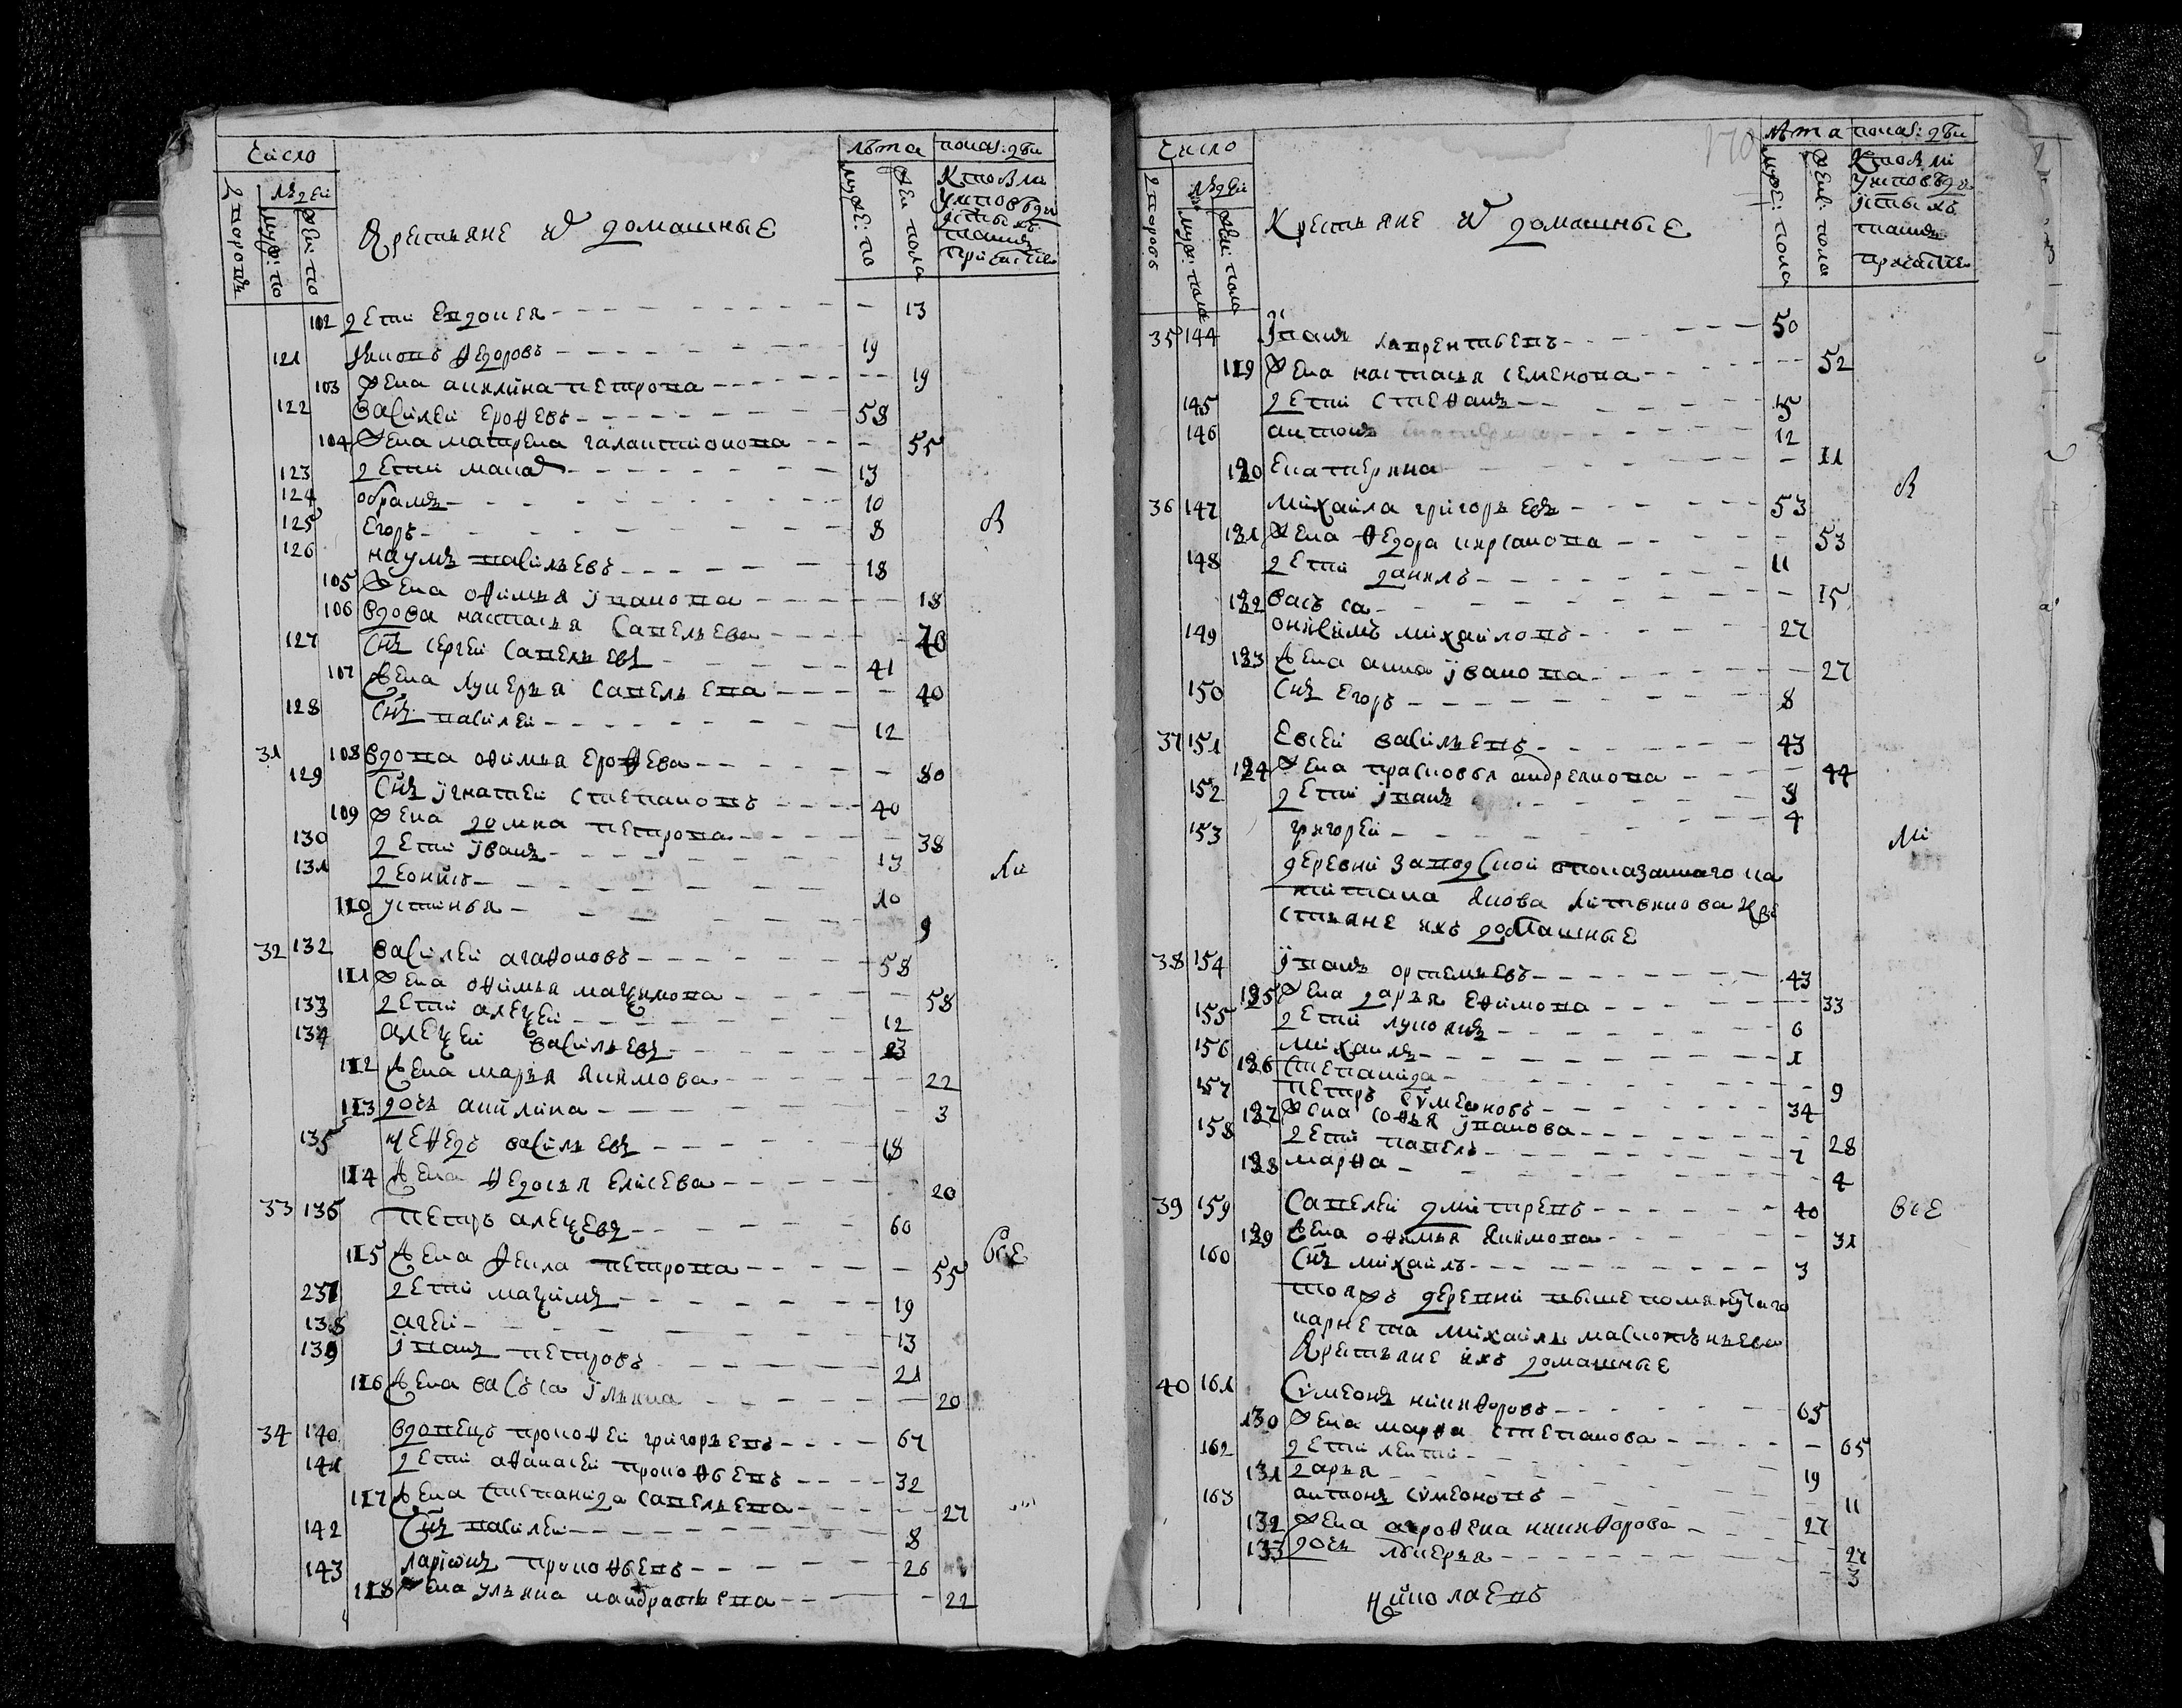 Число
лѣта
показ: дѣи
дворовъ
людей
муж: по
жен: по
Крестьяне и домашные
муже: по
жен пола
Кто были
у исповѣди
и
святыхъ
таинъ
причастие
102 дети Евдокея 13
121 Якопъ Ѳедоровъ 19
103 Жена акилина петрова 19
122 Василей ерофевъ 58
104 Жена матрена галактионова 55
123 дети макаръ 13
124 обрамъ 10
125 Егоръ 8
126 наумъ васильевъ 18
105 Жена офимья Iванова 18
106 Вдова настасья Савельева 70
127 Снъ сергей Савельевъ 41
107 Жена лукерья савельева 40
128 Снъ василей 12
31 108 Вдова офимья ерофева 80
129 Снъ Iгнатей степановъ 40
109 Жена домна петрова 38
130 дети Iванъ 13
131 деонисъ 10
110 устинья 9
32 132 Василей агафоновъ 58
111 Жена офимья маѯимова 58
133 дети алеѯей 12
134 алеѯей васильевъ 23
112 Жена марья якимова 22
113 дочь акилина 3
135 неФедъ васильевъ 18
114 Жена Ѳедосья елисева 20
33 136 Петръ алеѯевъ 60
115 Жена Ѳекла петрова 55
все
237 дети маѯимъ 19
138 агей 13
139 Iванъ петровъ 21
116 Жена васъса Iльина 20
34 140 вдовецъ прокофей григорьевъ 67
141 дети афанасей прокофьевъ 32
117 Жена степанида савельева 27
142 Снъ василей 8
143 ларiонъ прокофьевъ 26
118 Жена ульяна кандратьева 22
Число
лѣта
показ: дѣи
дворовъ
людей
муж: пола
жен: пола
Крестьяне и домашные
муже: пола
жен: пола
Кто были
у исповѣди
и
святыхъ
таинъ
причастие
170
35 144 Iванъ лаврентьевъ 50
119 Жена настасья семенова 52
145 дети стефанъ 15
146 антонъ 12
120 Екатерина 11
В
36 147 Михайла григорьевъ 53
121 Жена Ѳедора кирсанова 53
148 дети данилъ 11
122 Васъса 15
149 онисимъ михайловъ 27
123 Жена анна Iванова 27
150 Снъ Егоръ 8
37 151 Евсей васильевъ 43
124 Жена прасковья андреянова 44
152 дети Iванъ 8
153 григорей 4
деревни заводской впоказаннаго ка
питана Якова Литвинова кре
стьяне ихъ домашные
38 154 Iванъ ортемьевъ 43
125 Жена дарья ефимова 33
155 дети лукоянъ 6
156 михаилъ 1
126 Степанида 9
157 петръ Сѵмеоновъ 34
127 Жена софья Iванова 28
158 дети павелъ 7
128 марфа 4
39 159 Савелей дмитревъ 40
все
129 Жена офимья якимова 31
160 Снъ михаилъ 3
тояжъ деревни вышепомянутаго
карнета михайлы
крестьяне ихъ домашные
40 161 Сѵмеонъ никифоровъ 65
130 Жена марфа степанова 65
162 дети леитй 19
131 дарья 11
163 антонъ сѵмеоновъ 27
132 Жена агрофена никифорова 27
133 дочь лукерья 3
николаевъ